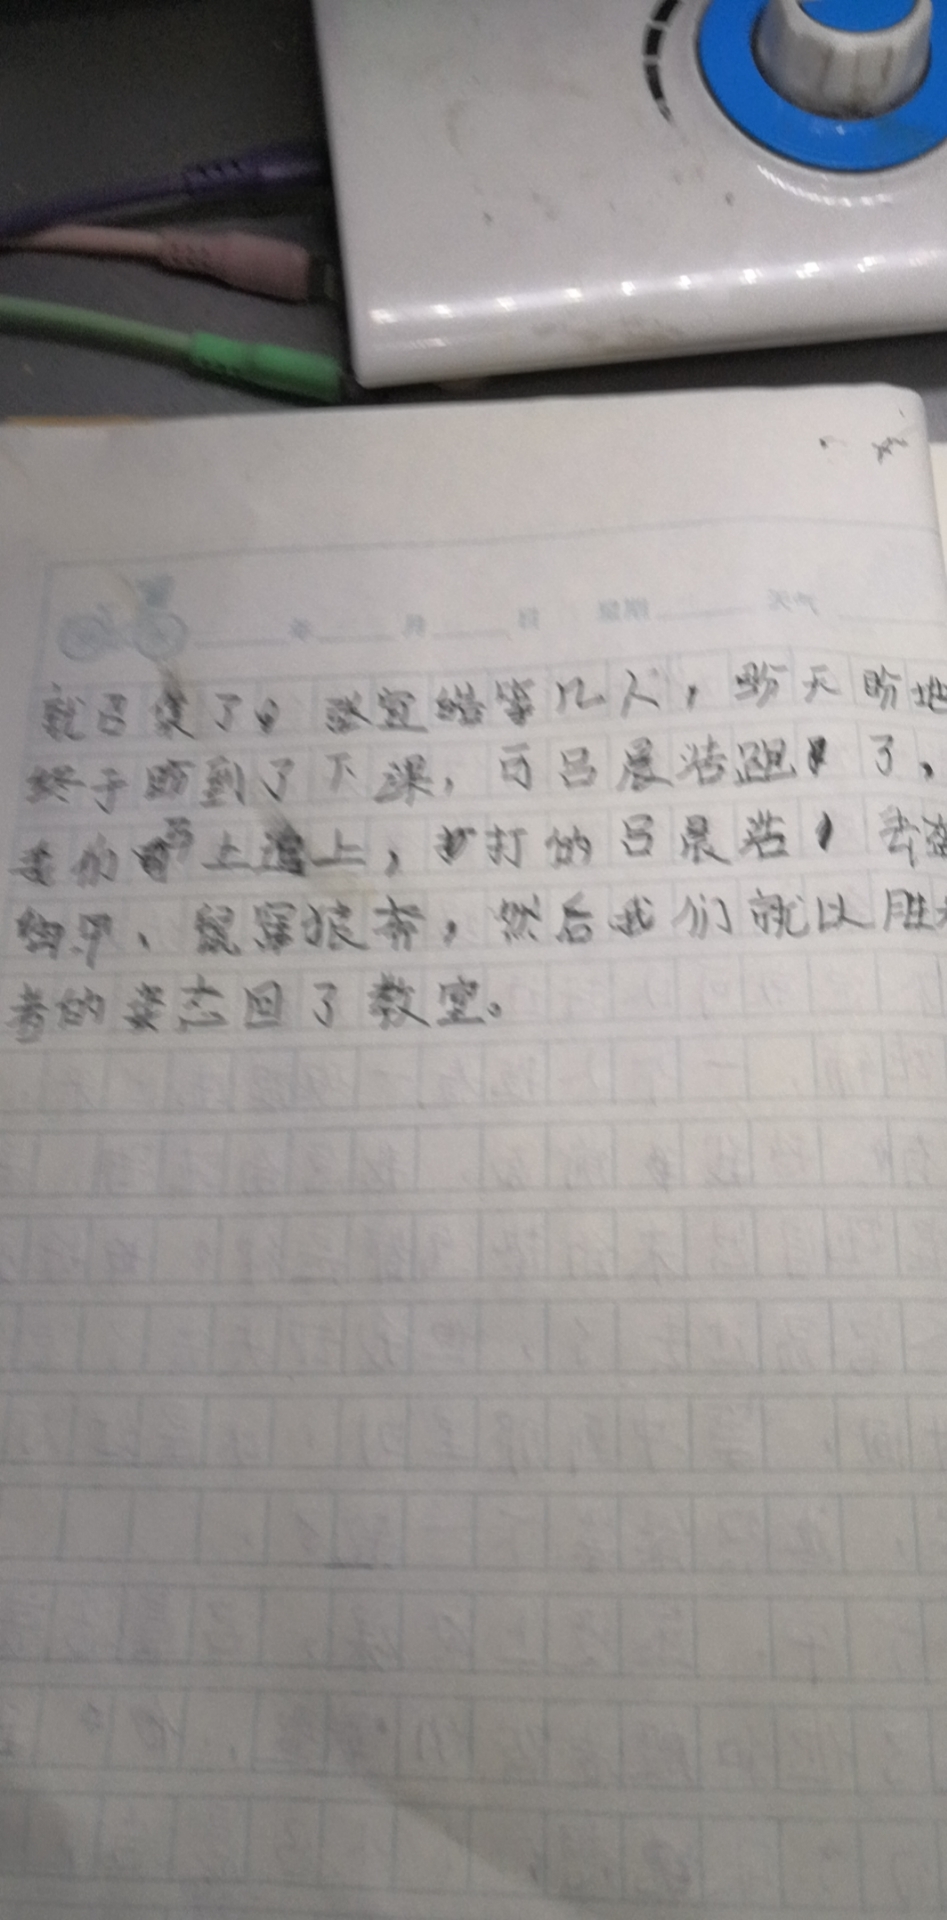 年 月 日 星期 天气
就已 了。张宜皓等几人,盼天盼地
终于盼到了下课,可吕晨浩跑了,
我们马上追上,打的吕晨浩丢盔
卸甲、鼠窜狼奔,然后我们就以胜
者的姿态回了教室。